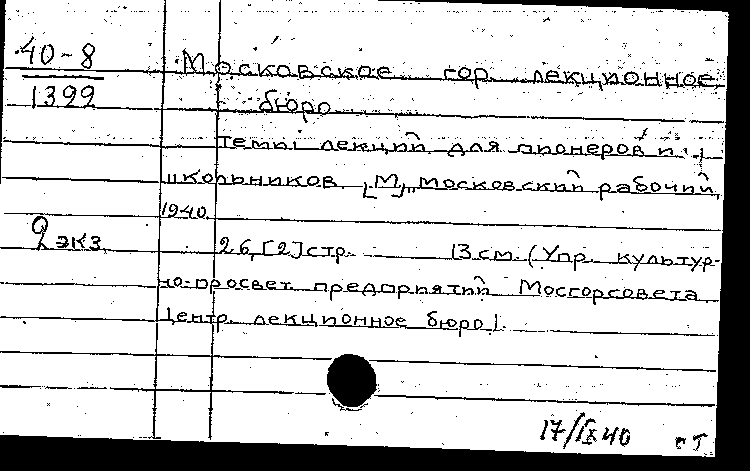 40-8
1399
Московское гор. лекционное
бюро
Темы лекций для пионеров и
школьников. [М], "Московский рабочий",
1940.
2 экз.
26, [2] стр. 13 см. (Упр. культур-
но-просвет. предприятий Мосгорсовета
Центр. лекционное бюро).
17/IX 40 пт